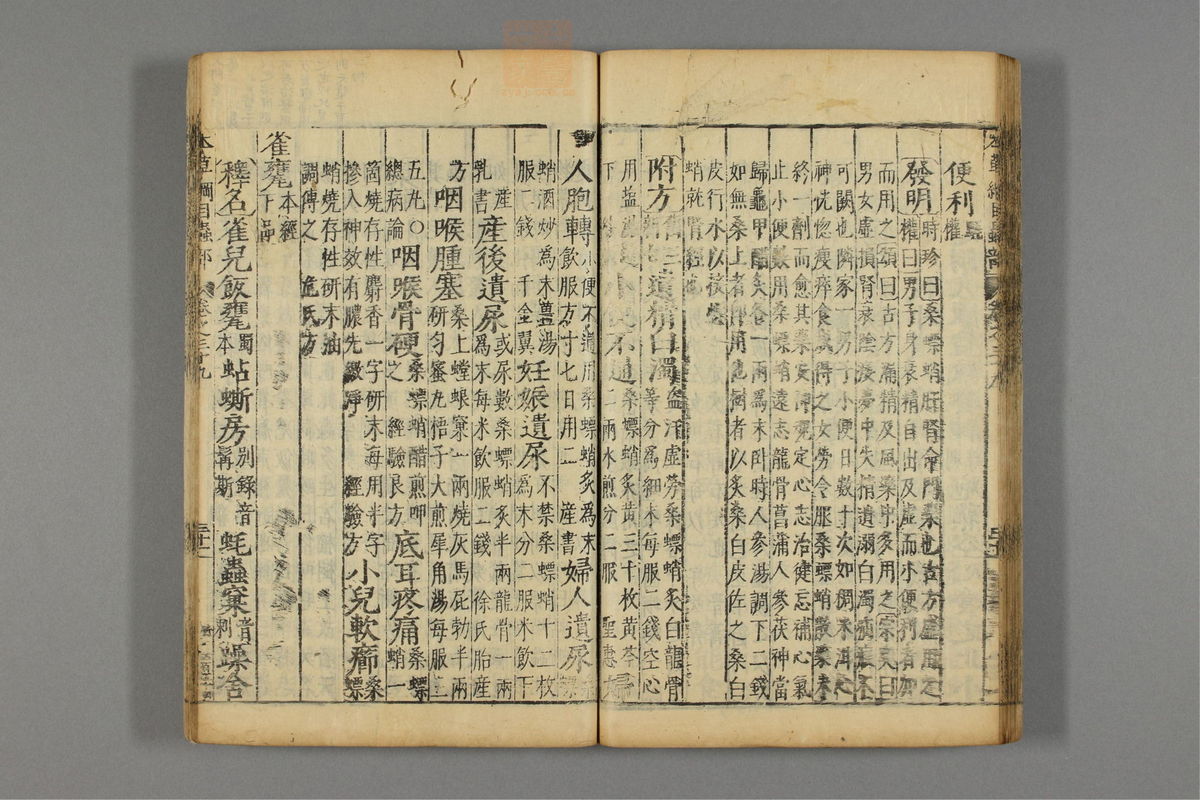 便利甄權
發明時珍曰桑螵蛸肝腎命門藥也古方盛用之
權曰男子身衰精自出及虛而小便利者加
而用之頌曰古方漏精及風藥中多用之宗奭曰
男女虛損腎衰陰痿夢中失精遺溺白濁疝瘕不
可闕也隣家一男子小便日數十次如稠米泔心
神恍惚瘦瘁食減得之女勞令服桑螵蛸散藥未
終一劑而愈其藥安神魂定心志治健忘補心氣
止小便數用桑螵蛸遠志龍骨菖蒲人參茯神當
歸龜甲醋炙各一兩爲末卧時人參湯調下二錢
如無桑上者即用他樹者以炙桑白皮佐之桑白
皮行水以接
蛸就腎經也
附方遺精白濁盜汗虛勞桑螵蛸炙白龍骨
等分爲細末每服二錢空心
用鹽湯 小便不通桑螵蛸炙黃三十枚黃芩
下 二兩水煎分二服 聖惠 婦
人胞轉小便不通用桑螵蛸炙爲末
飲服方寸七日用二 產書 婦人遺尿
蛸酒炒爲末薑湯
服二錢 千金翼 妊娠遺尿不禁桑螵蛸十二枚
爲末分二服米飲下
產
乳書 產後遺尿或尿數桑螵蛸炙半兩龍骨一兩
爲末每米飲服二錢 徐氏胎產
方 咽喉腫塞桑上螳蜋窠一兩燒灰馬屁勃半兩
研勻蜜丸梧子大煎犀角湯每服三
五丸〇
總病論 咽喉骨硬桑螵蛸醋煎呷
之 經驗良方 底耳疼痛桑螵
蛸一
箇燒存性麝香一字研末每用半字
摻入神效有膿先繳淨 經驗方 小兒軟癤桑
螵
蛸燒存性研末油
調傅之 危氏方
雀甕本經
下品
釋名雀兒飯甕蜀
本 蛅蟖房別錄音
髯斯 蚝蟲窠音
刺 躁舍
本草綱目蟲部 卷之三十九 三十二